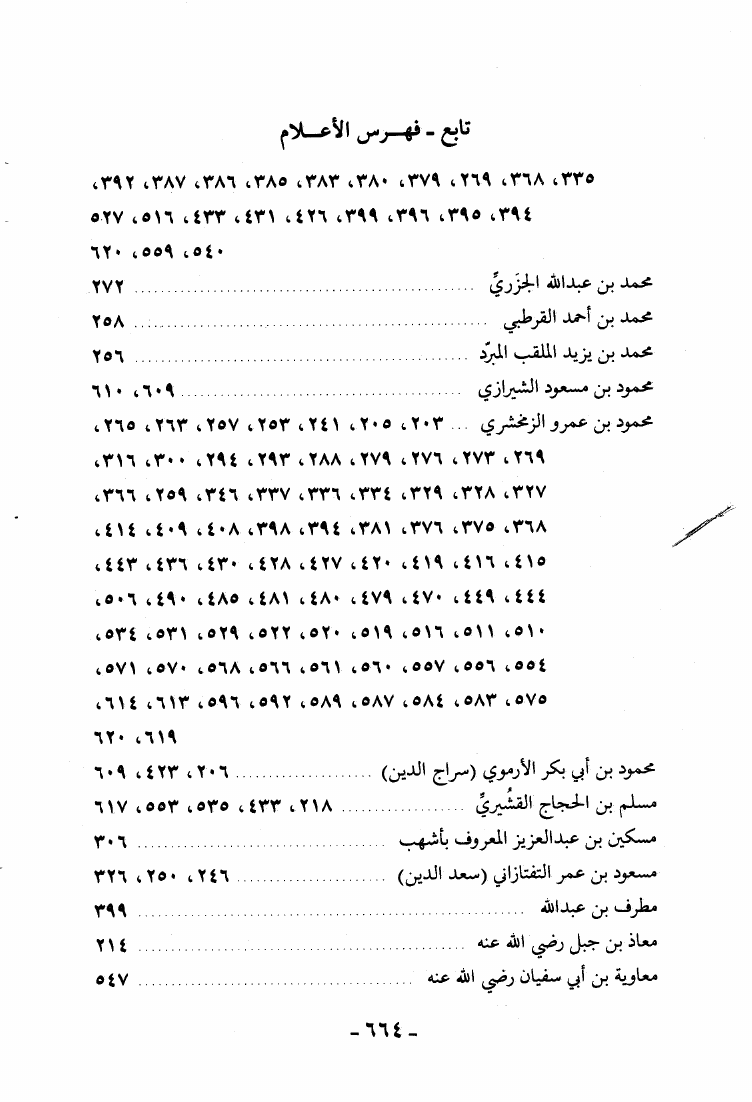 تابع - فهرس الأعلام
٣٣٥، ٣٦٨، ٢٦٩، ٣٧٩، ٣٨٠، ٣٨٣، ٣٨٥، ٣٨٦، ٣٨٧، ٣٩٢،
٣٩٤، ٣٩٥، ٣٩٦، ٣٩٩، ٤٢٦، ٤٣١، ٤٣٣، ٥١٦، ٥٢٧
٥٤٠، ٥٥٩، ٦٢٠
محمد بن عبدالله الجَزَريِّ ..... ٢٧٢
محمد بن أحمد القرطبي ..... ٢٥٨
محمد بن يزيد الملقب المبرّد ..... ٢٥٦
محمود بن مسعود الشيرازي ..... ٦٠٩، ٦١٠
محمود بن عمرو الزمخشري ... ٢٠٣، ٢٠٥، ٢٤١، ٢٥٣، ٢٥٧، ٢٦٣، ٢٦٥،
٢٦٩، ٢٧٣، ٢٧٦، ٢٧٩، ٢٨٨، ٢٩٣، ٢٩٤، ٣٠٠، ٣١٦،
٣٢٧، ٣٢٨، ٣٢٩، ٣٣٤، ٣٣٦، ٣٣٧، ٣٤٦، ٢٥٩، ٣٦٦،
٣٦٨، ٣٧٥، ٣٧٦، ٣٨١، ٣٩٤، ٣٩٨، ٤٠٨، ٤٠٩، ٤١٤،
٤١٥، ٤١٦، ٤١٩، ٤٢٠، ٤٢٧، ٤٢٨، ٤٣٠، ٤٣٦، ٤٤٣،
٤٤٤، ٤٤٩، ٤٧٠، ٤٧٩، ٤٨٠، ٤٨١، ٤٨٥، ٤٩٠، ٥٠٦،
٥١٠، ٥١١، ٥١٦، ٥١٩، ٥٢٠، ٥٢٢، ٥٢٩، ٥٣١، ٥٣٤،
٥٥٤، ٥٥٦، ٥٥٧، ٥٦٠، ٥٦١، ٥٦٦، ٥٦٨، ٥٧٠، ٥٧١،
٥٧٥، ٥٨٣، ٥٨٤، ٥٨٧، ٥٨٩، ٥٩٢، ٥٩٦، ٦١٣، ٦١٤،
٦١٩، ٦٢٠
محمود بن أبي بكر الأرموي (سراج الدين) ..... ٢٠٦، ٤٢٣، ٦٠٩
مسلم بن الحجاج القشُيريِّ ..... ٢١٨، ٤٣٣، ٥٣٥، ٥٥٣، ٦١٧
مسكين بن عبدالعزيز المعروف بأشهب ..... ٣٠٦
مسعود بن عمر التفتازاني (سعد الدين) ..... ٢٤٦، ٢٥٠، ٣٢٦
مطرف بن عبدالله ..... ٣٩٩
معاذ بن جبل رضي الله عنه ..... ٢١٤
معاوية بن أبي سفيان رضي الله عنه ..... ٥٤٧
- ٦٦٤ -